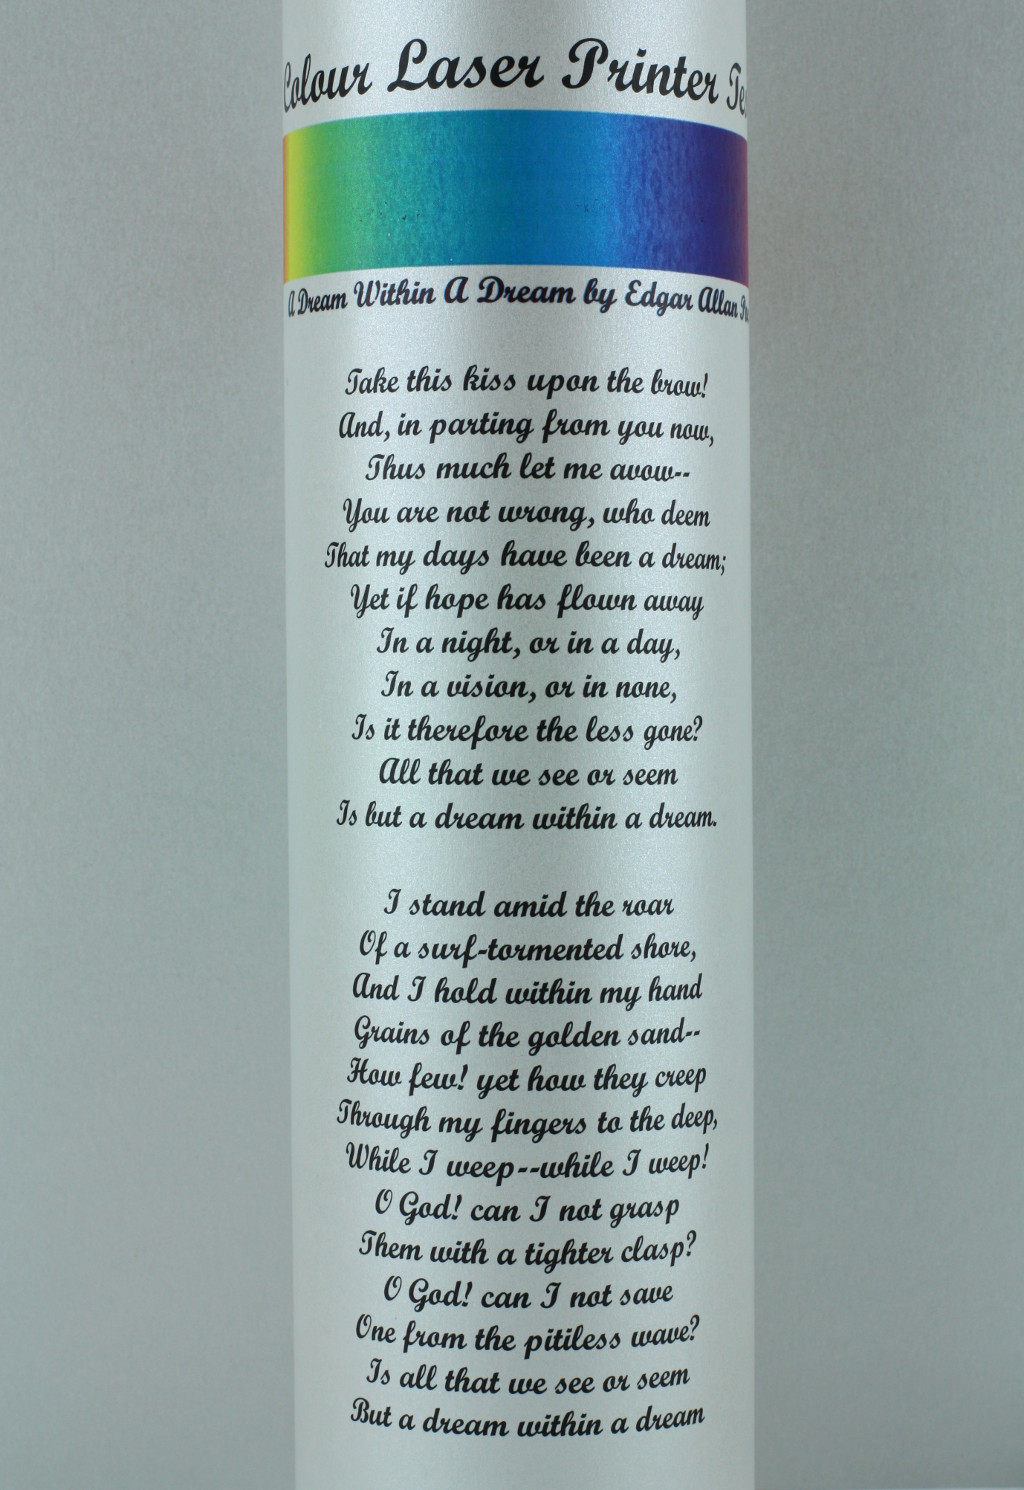 Colour Laser Printer
A Dream Within A Dream by Edgar Allan
Take this kiss upon the brow!
And, in parting from you now,
Thus much let me avow--
You are not wrong, who deem
That my days have been a dream;
Yet if hope has flown away
In a night, or in a day,
In a vision, or in none,
Is it therefore the less gone?
All that we see or seem
Is but a dream within a dream.
I stand amid the roar
Of a surf-tormented shore,
And I hold within my hand
Grains of the golden sand--
How few! yet how they creep
Through my fingers to the deep,
While I weep--while I weep!
O God! can I not grasp
Them with a tighter clasp?
O God! can I not save
One from the pitiless wave?
Is all that we see or seem
But a dream within a dream